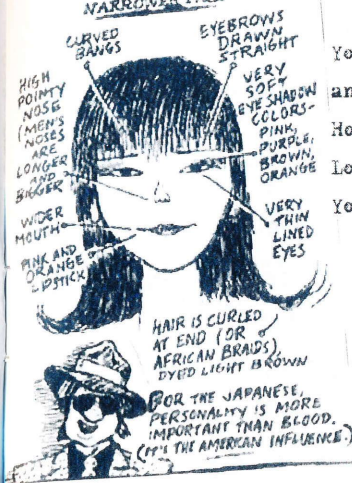 NARROWER
CURVED
BANGS
EYEBROWS
DRAWN
STRAIGHT
HIGH
POINTY
NOSE
(MEN'S
NOSES
ARE
LONGER
AND
BIGGER)
VERY
SOFT
EYE SHADOW
COLORS-
PINK,
PURPLE,
BROWN,
ORANGE
WIDER
MOUTH
VERY
THIN
LINED
EYES
PINK AND
ORANGE
LIPSTICK
HAIR IS CURLED
AT END (OR
AFRICAN BRAIDS),
DYED LIGHT BROWN
FOR THE JAPANESE,
PERSONALITY IS MORE
IMPORTANT THAN BLOOD.
(IT'S THE AMERICAN INFLUENCE.)
Yo
an
Ho
Lo
Yo